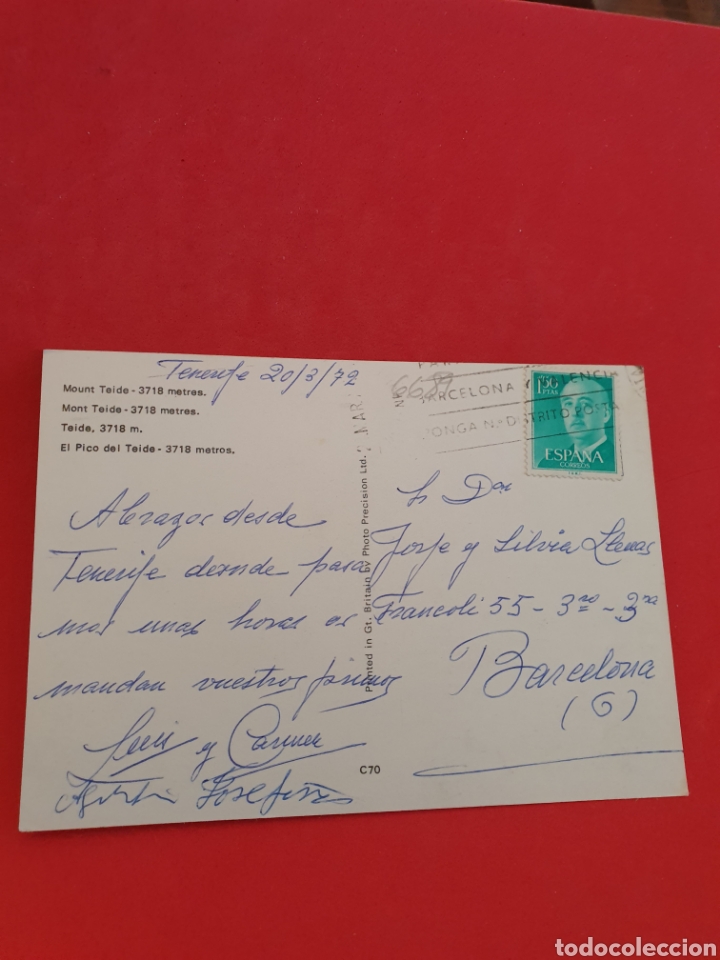 Tenerife 20/3/72
Mount Teide - 3718 metres.
Mont Teide - 3718 metres.
Teide, 3718 m.
El Pico del Teide - 3718 metros.
Abrazos desde
Tenerife desnde pasa
mos unas horas os
mandan vuestros primos
Luis y Carmen
Agustin Josefina
Printed in Gt. Britain by Photo Precision Ltd.
C70
MAR.
6689
BARCELONA Y VALENCIA
PONGA N.º DISTRITO POSTA
1'50
PTAS
ESPAÑA
CORREOS
Sr Don
Jorge y Silvia Llenas
Francoli 55 - 3ro - 3ra
Barcelona
(6)
todocoleccion